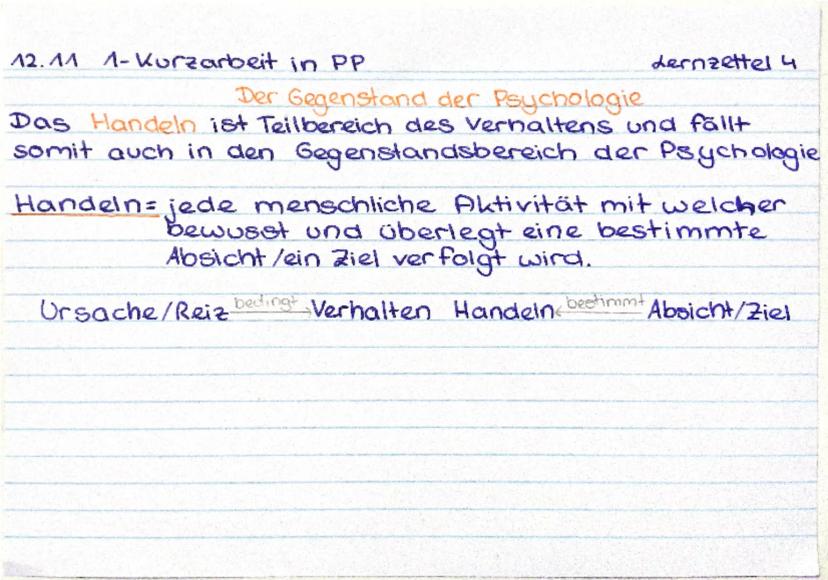 12.11 1-Kurzarbeit in PP Lernzettel 4
Der Gegenstand der Psychologie
Das Handeln ist Teilbereich des Verhaltens und fällt
somit auch in den Gegenstandsbereich der Psychologie
Handeln= jede menschliche Aktivität mit welcher
bewusst und überlegt eine bestimmte
Absicht/ein Ziel verfolgt wird.
Ursache/Reiz bedingt → Verhalten Handeln ← bestimmt Absicht/Ziel